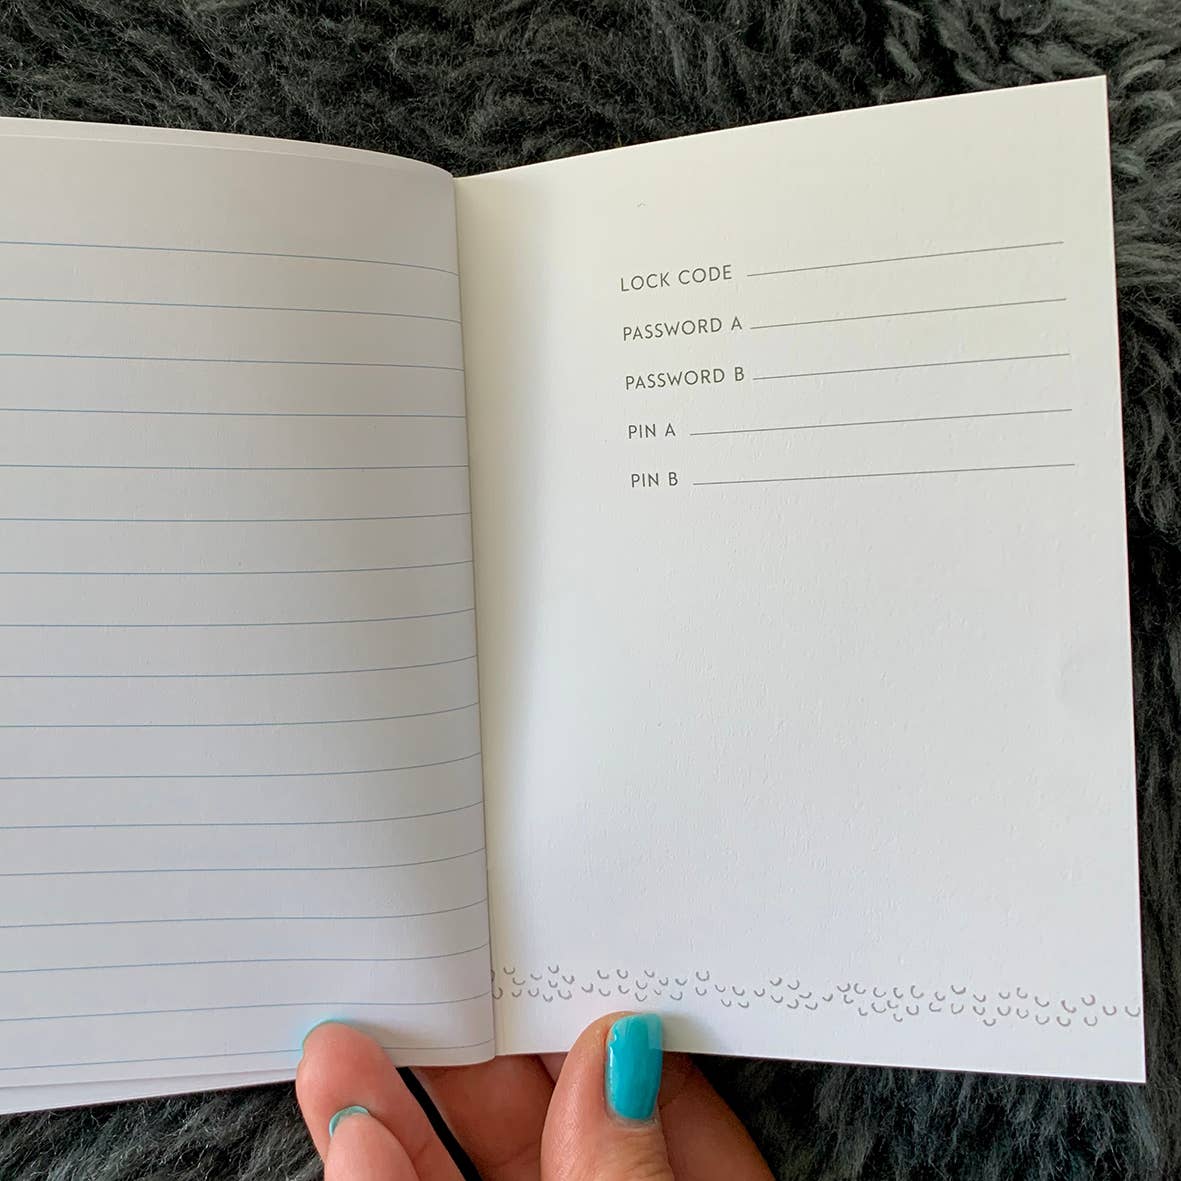 LOCK CODE
PASSWORD A
PASSWORD B
PIN A
PIN B